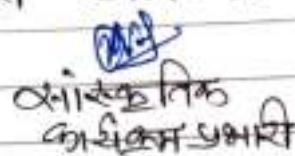 सांस्कृतिक
कार्यक्रम प्रभारी